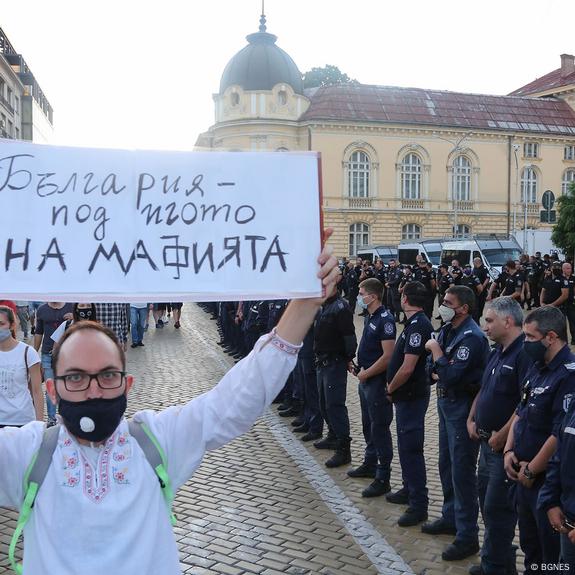 България -
под игото
НА МАФИЯТА
© BGNES